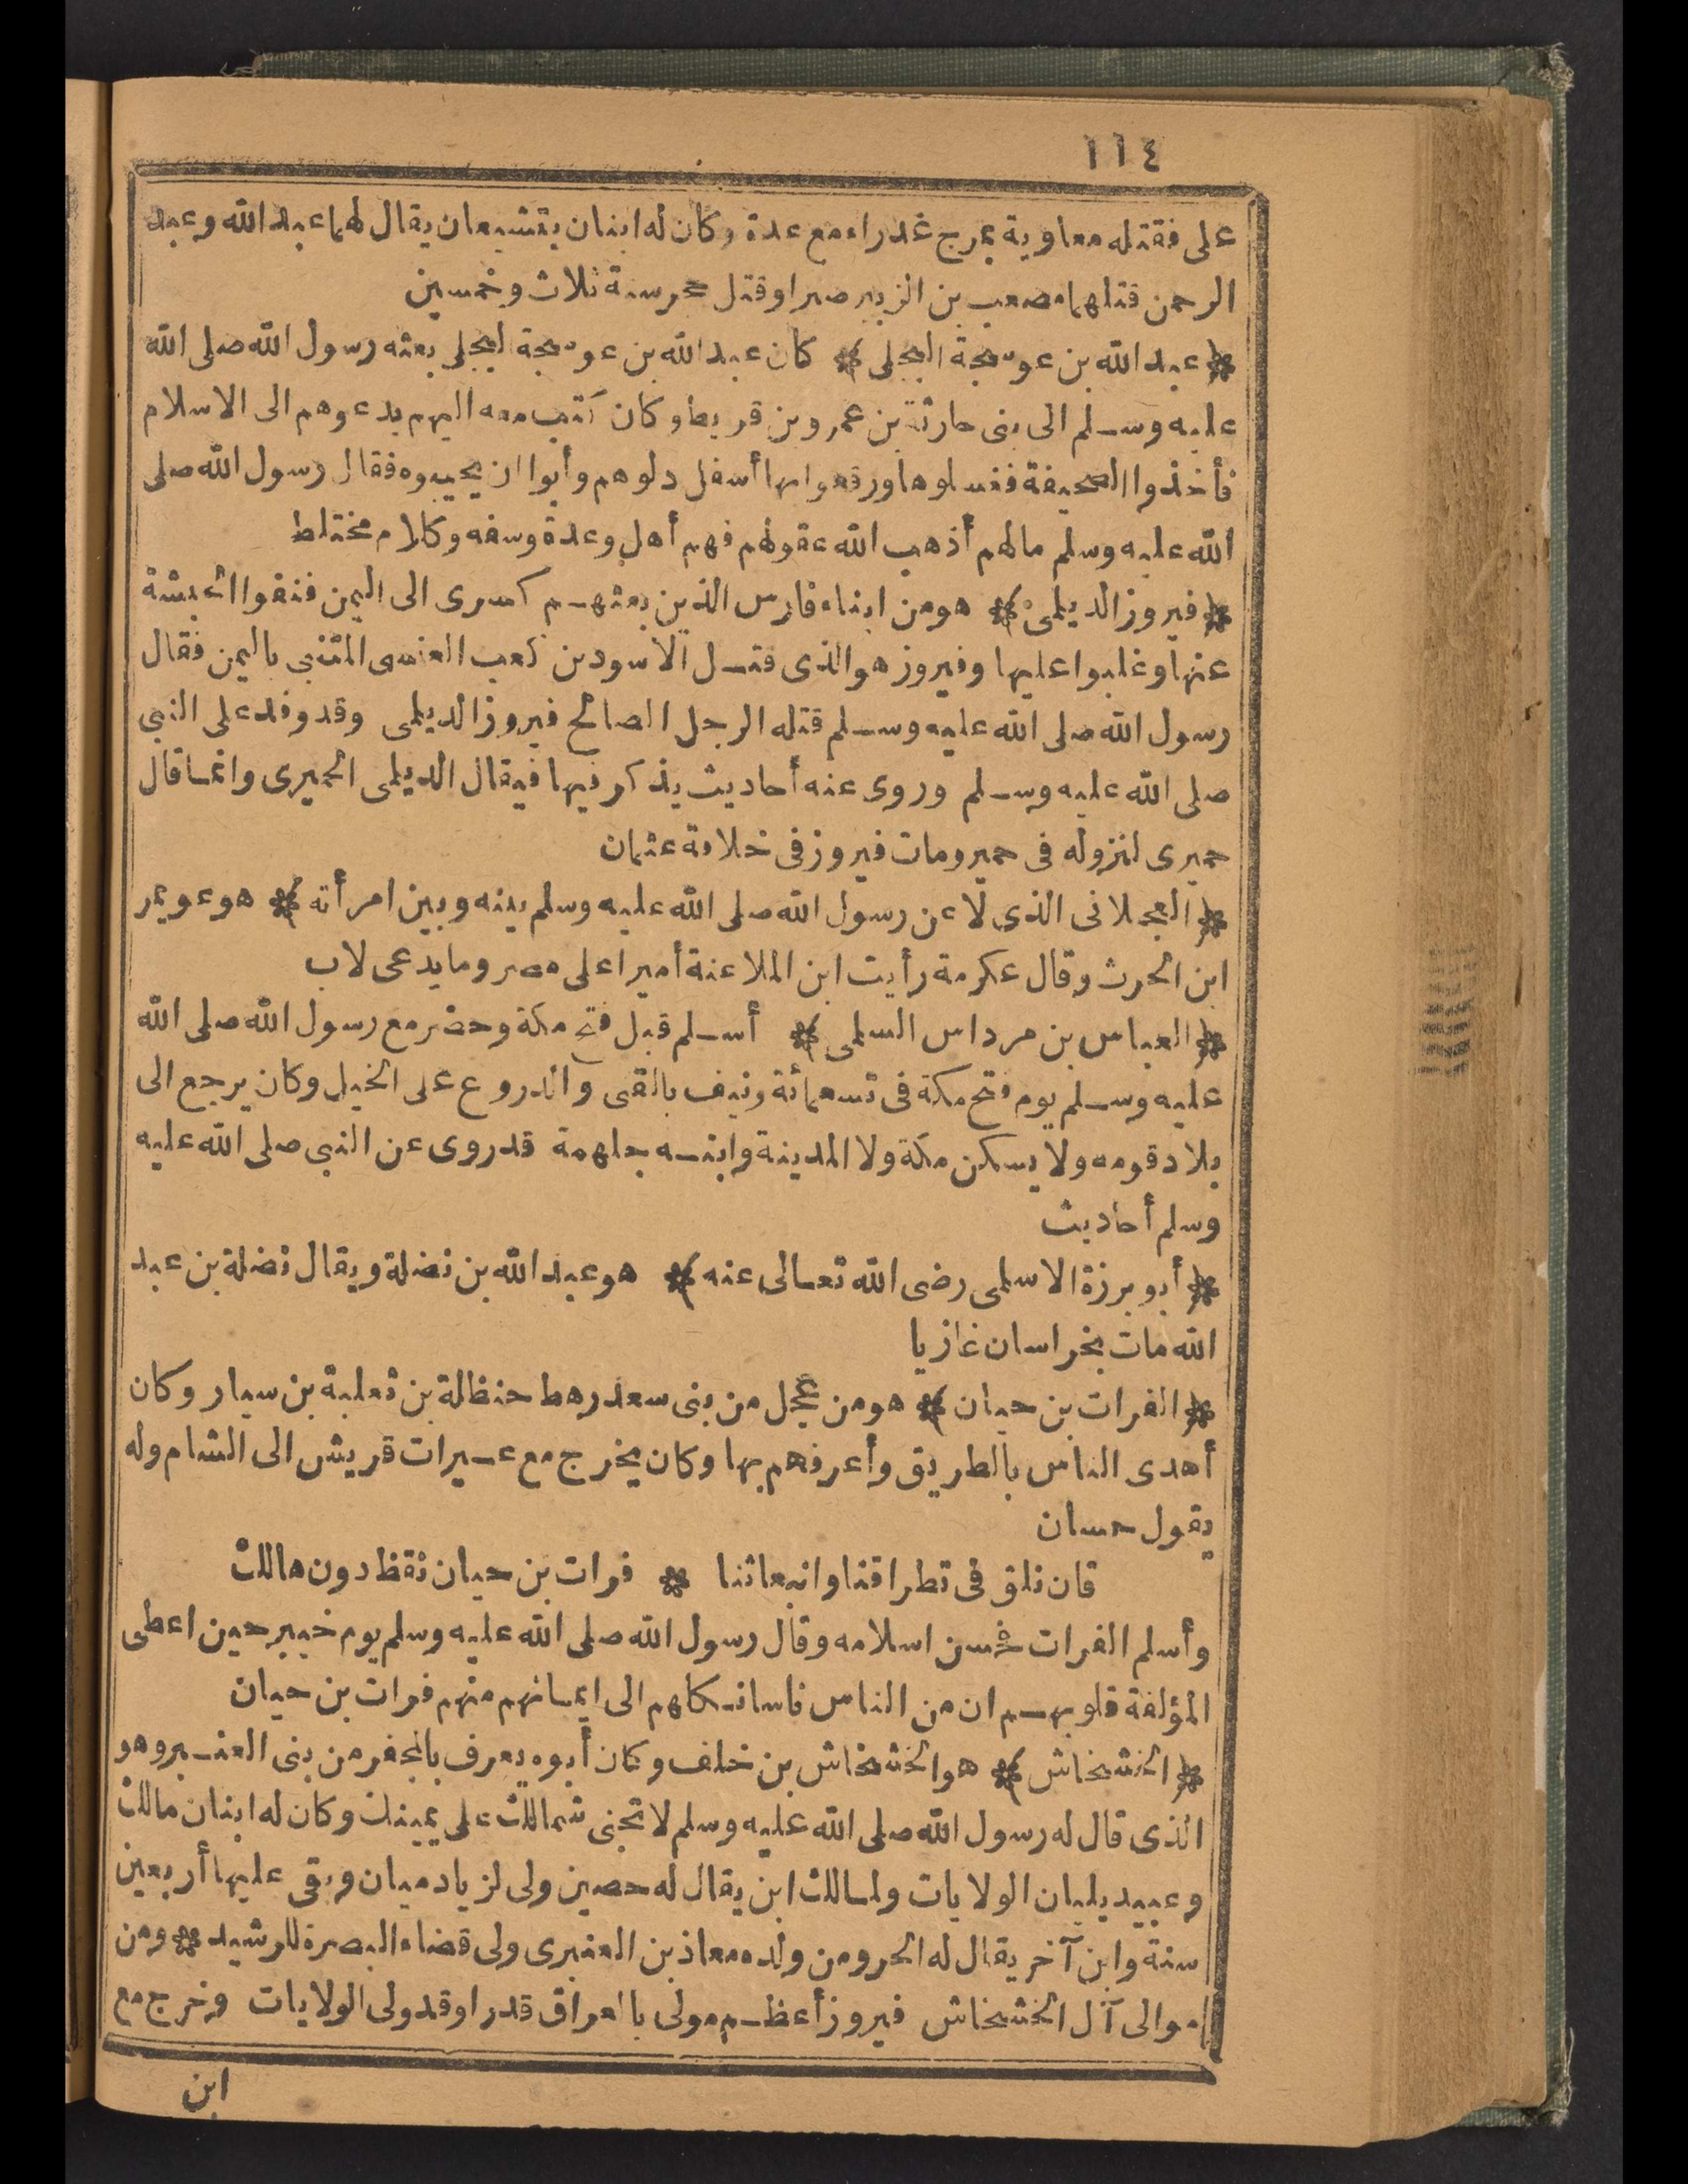 ١١٤
على فقتله معاوية بمرج غدراء مع عدة وكان له ابنان يتشيعان يقال لهما عبد الله وعبد
الرحمن قتلهما مصعب بن الزبير صبرا وقتل حجر سنة ثلاث وخمسين
* عبد الله بن عوسجة البجلى * كان عبد الله بن عوسجة البجلى بعثه رسول الله صلى الله
عليه وسلم الى بنى حارثة بن عمرو بن قريط وكان كتب معه اليهم يدعوهم الى الاسلام
فأخذوا الصحيفة فغسلوها ورقعوا بها أسفل دلوهم وأبوا ان يجيبوه فقال رسول الله صلى
الله عليه وسلم مالهم أذهب الله عقولهم فهم أهل وعدة وسفه وكلام مختلط
* فيروز الديلمى * هو من ابناء فارس الذين بعثهم كسرى الى اليمن فنفوا الحبشة
عنها وغلبوا عليها وفيروز هو الذى قتل الاسود بن كعب العنسى المتنبى باليمن فقال
رسول الله صلى الله عليه وسلم قتله الرجل الصالح فيروز الديلمى وقد وفد على النبى
صلى الله عليه وسلم وروى عنه أحاديث يذكر فيها فيقال الديلمى الحميرى وانما قال
حميرى لنزوله فى حمير ومات فيروز فى خلافة عثمان
* العجلانى الذى لاعن رسول الله صلى الله عليه وسلم بينه وبين امرأته * هو عويمر
ابن الحرث وقال عكرمة رأيت ابن الملاعنة أميرا على مصر وما يدعى لاب
* العباس بن مرداس السلمى * أسلم قبل فتح مكة وحضر مع رسول الله صلى الله
عليه وسلم يوم فتح مكة فى تسعمائة ونيف بالقى والدروع على الخيل وكان يرجع الى
بلاد قومه ولا يسكن مكة ولا المدينة وابنه جلهمة قد روى عن النبى صلى الله عليه
وسلم أحاديث
* أبو برزة الاسلمى رضى الله تعالى عنه * هو عبد الله بن نضلة ويقال نضلة بن عبد
الله مات بخراسان غازيا
* الفرات بن حيان * هو من عجل من بنى سعد رهط حنظلة بن ثعلبة بن سيار وكان
أهدى الناس بالطريق وأعرفهم بها وكان يخرج مع عيرات قريش الى الشام وله
يقول حسان
فان نلق فى تطرافنا وانبعاثنا * فرات بن حيان نقظ دون هالك
وأسلم الفرات فحسن اسلامه وقال رسول الله صلى الله عليه وسلم يوم خيبر حين اعطى
المؤلفة قلوبهم ان من الناس ناسا نكلهم الى ايمانهم منهم فرات بن حيان
* الخشخاش * هو الخشخاش بن خلف وكان أبوه يعرف بالمجفر من بنى العنبر وهو
الذى قال له رسول الله صلى الله عليه وسلم لا تجنى شمالك على يمينك وكان له ابنان مالك
وعبيد يليان الولايات ولمالك ابن يقال له حصين ولى لزياد ميسان وبقى عليها أربعين
سنة وابن آخر يقال له الحر ومن ولده معاذ بن العنبرى ولى قضاء البصرة للرشيد * ومن
موالى آل الخشخاش فيروز أعظم مولى بالعراق قدرا وقد ولى الولايات وخرج مع
ابن